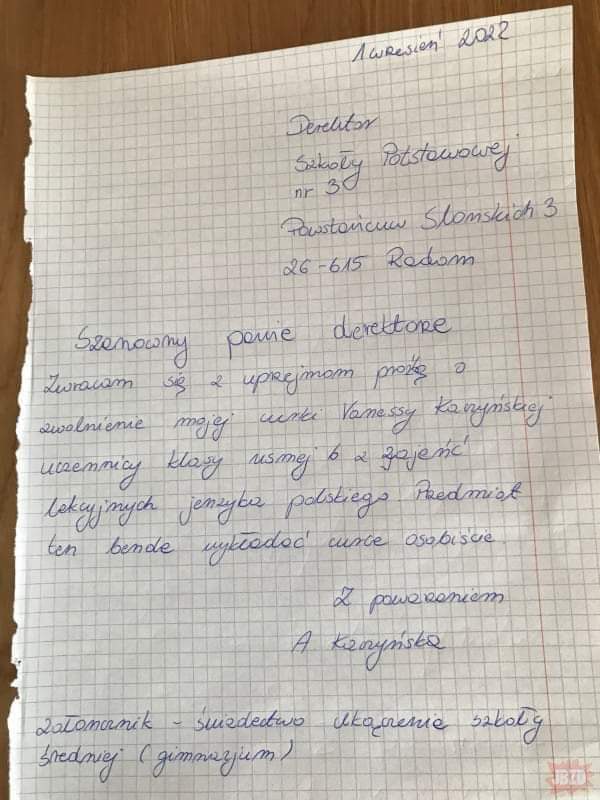 1 wresień 2022
Derektor
Szkoły Potstawowej
nr 3
Powstańcuw Slonskich 3
26-615 Radom
Szanowny panie derektoże
Zwracam się z uprzejmom proźbą o
zwolnienie mojej curki Vanessy Kaczyńskiej
uczennicy klasy usmej b z zajeńć
lekcyjnych jenzyka polskiego. Przedmiot
ten bende wykładać curce osobiście.
Z powarzaniem
A Kaczyńska
załoncznik - świadectwo ukączenia szkoły
średniej (gimnazjum)
JBZD